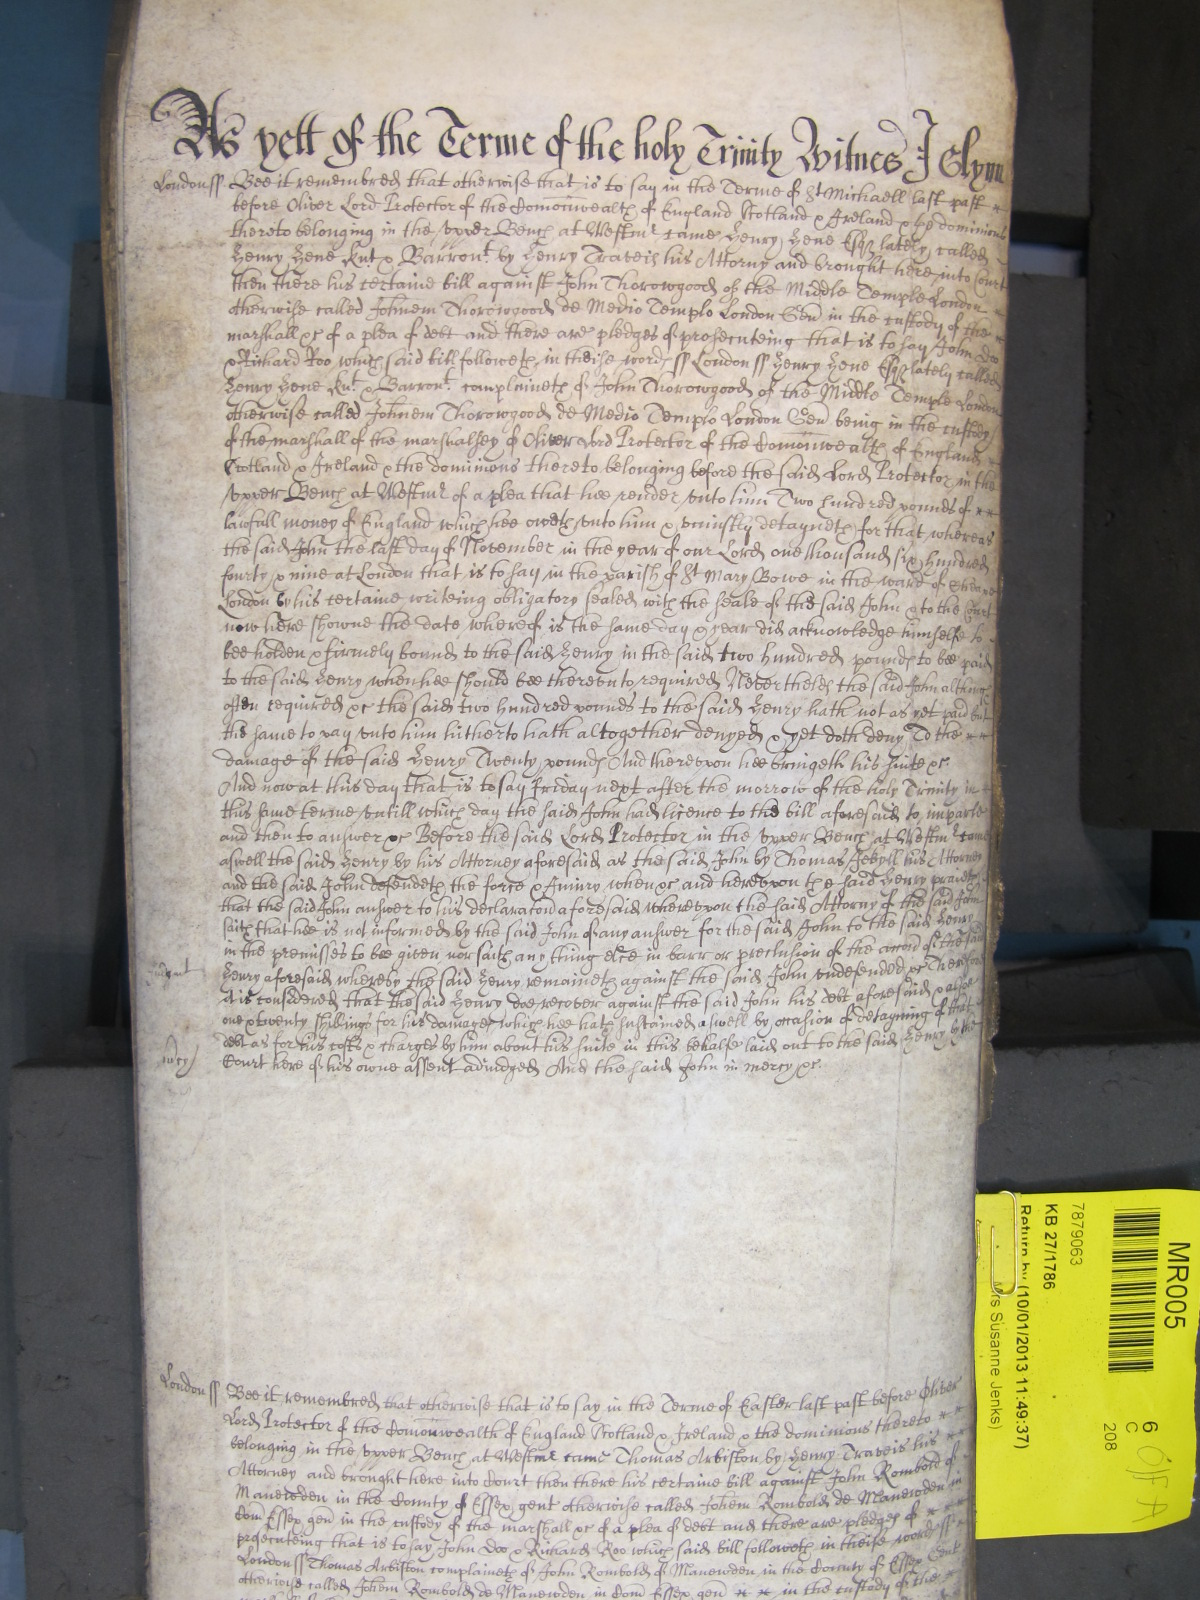 As yett of the Terme of the holy Trinity Witnes J Glynn
London ss Bee it remembred that otherwise that is to say in the Terme of St Michaell last past
before Oliver Lord Protector of the Comonwealth of England Scotland & Ireland & the dominions
thereto belonging in the upper Bench at Westmr came Henry Hene Esqr lately called
Henry Hene Knt & Barront by Henry Traveis his Attorny and brought here into Court
then there his certaine bill against John Thorowgood of the Middle Temple London
otherwise called Johnem Thorowgood de Medio Templo London Gen in the custody of the
marshall &c of a plea of debt and there are pledges of prosecuteing that is to say John Doo
& Richard Roo which said bill followeth in theise words ss London ss Henry Hene Esqr lately called
Henry Hene Knt & Barront complaineth of John Thorowgood of the Middle Temple London
otherwise called Johnem Thorowgood de Medio Templo London Gen being in the custody
of the marshall of the marshalsey of Oliver Lord Protector of the Comonwealth of England
Scotland & Ireland & the dominions thereto belonging before the said Lord Protector in the
upper Bench at Westmr of a plea that hee render unto him Two hundred pounds of
lawfull money of England which hee oweth unto him & uniustly detayneth for that whereas
the said John the last day of November in the year of our Lord one thousand six hundred
fourty & nine at London that is to say in the parish of St Mary Bowe in the ward of Cheape
London by his certaine writeing obligatory sealed with the seale of the said John & to the Court
now here showne the date whereof is the same day & year did acknowledge himselfe to
bee holden & firmely bound to the said Henry in the said two hundred pounds to bee paid
to the said Henry when hee should bee thereunto required Neverthelesse the said John although
often required &c the said two hundred pounds to the said Henry hath not as yet paid but
the same to pay unto him hitherto hath altogether denyed & yet doth deny To the
damage of the said Henry Twenty pounds And thereupon hee bringeth his suite &c
And now at this day that is to say Friday next after the morrow of the holy Trinity in
this same terme untill which day the said John had licence to the bill aforesaid to imparle
and then to answer &c Before the said Lord Protector in the upper Bench at Westmr come
aswell the said Henry by his Attorney aforesaid as the said John by Thomas Jekyll his Attorney
and the said John defendeth the force & Iniury when &c and hereupon the said Henry prayeth
that the said John answer to his declaracon aforesaid whereupon the said Attorny of the said John
saith that hee is not informed by the said John of any answer for the said John to the said Henry
in the premisses to bee given nor saith any thing else in barr or preclusion of the accon of the said
Henry aforesaid whereby the said Henry remaineth against the said John undefended &c Therefore
Judgmt it is considered that the said Henry doe recover against the said John his debt aforesaid & alsoe
one & twenty shillings for his damages which hee hath sustained aswell by occasion of detayning of that
debt as for his costs & charges by him about his suite in this behalfe laid out to the said Henry by the
mrcy Court here of his owne assent adiudged And the said John in mercy &c
London ss Bee it remembred that otherwise that is to say in the Terme of Easter last past before Oliver
Lord Protector of the Comonwealth of England Scotland & Ireland & the dominions thereto
belonging in the upper Bench at Westmr came Thomas Arbiston by Henry Traveis his
Attorney and brought here into Court then there his certaine bill against John Rombold of
Manewden in the County of Essex gent otherwise called Johem Rombold de Manewden in
Com Essex gen in the custody of the marshall &c of a plea of debt and there are pledges of
prosecuteing that is to say John Doo & Richard Roo which said bill followeth in theise words ss
London ss Thomas Arbiston complaineth of John Rombold of Manewden in the County of Essex Gent
otherwise called Johem Rombold de Manewden in Com Essex gen in the custody of the
MR005
7879063
KB 27/1786
Return by (10/01/2013 11:49:37)
Mrs Susanne Jenks)
6
C
208
Off A